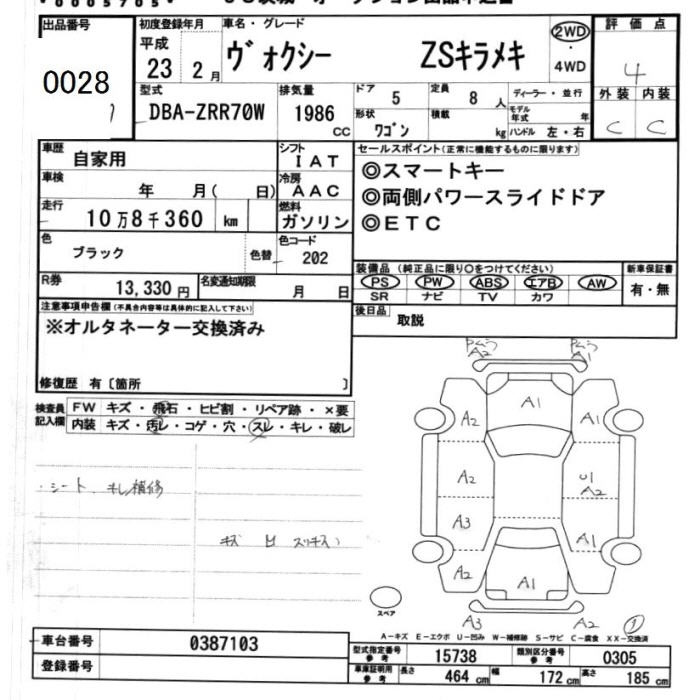 出品番号
0028
初度登録年月
平成
23 2 月
車名・グレード
ヴォクシー ZSキラメキ
2WD
・
4WD
評価点
4
外装 内装
C C
型式
DBA-ZRR70W
排気量
1986
CC
ドア
5
定員
8 人
ディーラー・並行
形状
ワゴン
積載
kg
モデル年式 年
ハンドル 左・右
車歴
自家用
シフト
IAT
車検
年 月( 日)
冷房
AAC
走行
10万8千360 km
燃料
ガソリン
セールスポイント(正常に機能するものに限ります)
◎スマートキー
◎両側パワースライドドア
◎ETC
色
ブラック
色替
色コード
202
R券
13,330円
名変通知期限
月 日
装備品(純正品に限り○をつけてください)
PS PW ABS エアB AW
SR ナビ TV カワ
新車保証書
有・無
注意事項申告欄(不具合内容等は具体的に記入して下さい)
※オルタネーター交換済み
後日品
取説
修復歴 有〔箇所 〕
検査員
記入欄
FW キズ・飛石・ヒビ割・リペア跡・×要
内装 キズ・汚レ・コゲ・穴・スレ・キレ・破レ
・シート キレ補修
キズ
A2 A1
A1
A2 A1
A2
U1
A2
A3 A1
A2
A1
A3 A2
スペア
A-キズ E-エクボ U-凹み W-補修跡 S-サビ C-腐食 XX-交換済
車台番号
0387103
登録番号
型式指定番号
参考
15738
類別区分番号
参考
0305
車庫証明用
参考
長さ
464 cm
幅
172 cm
高さ
185 cm